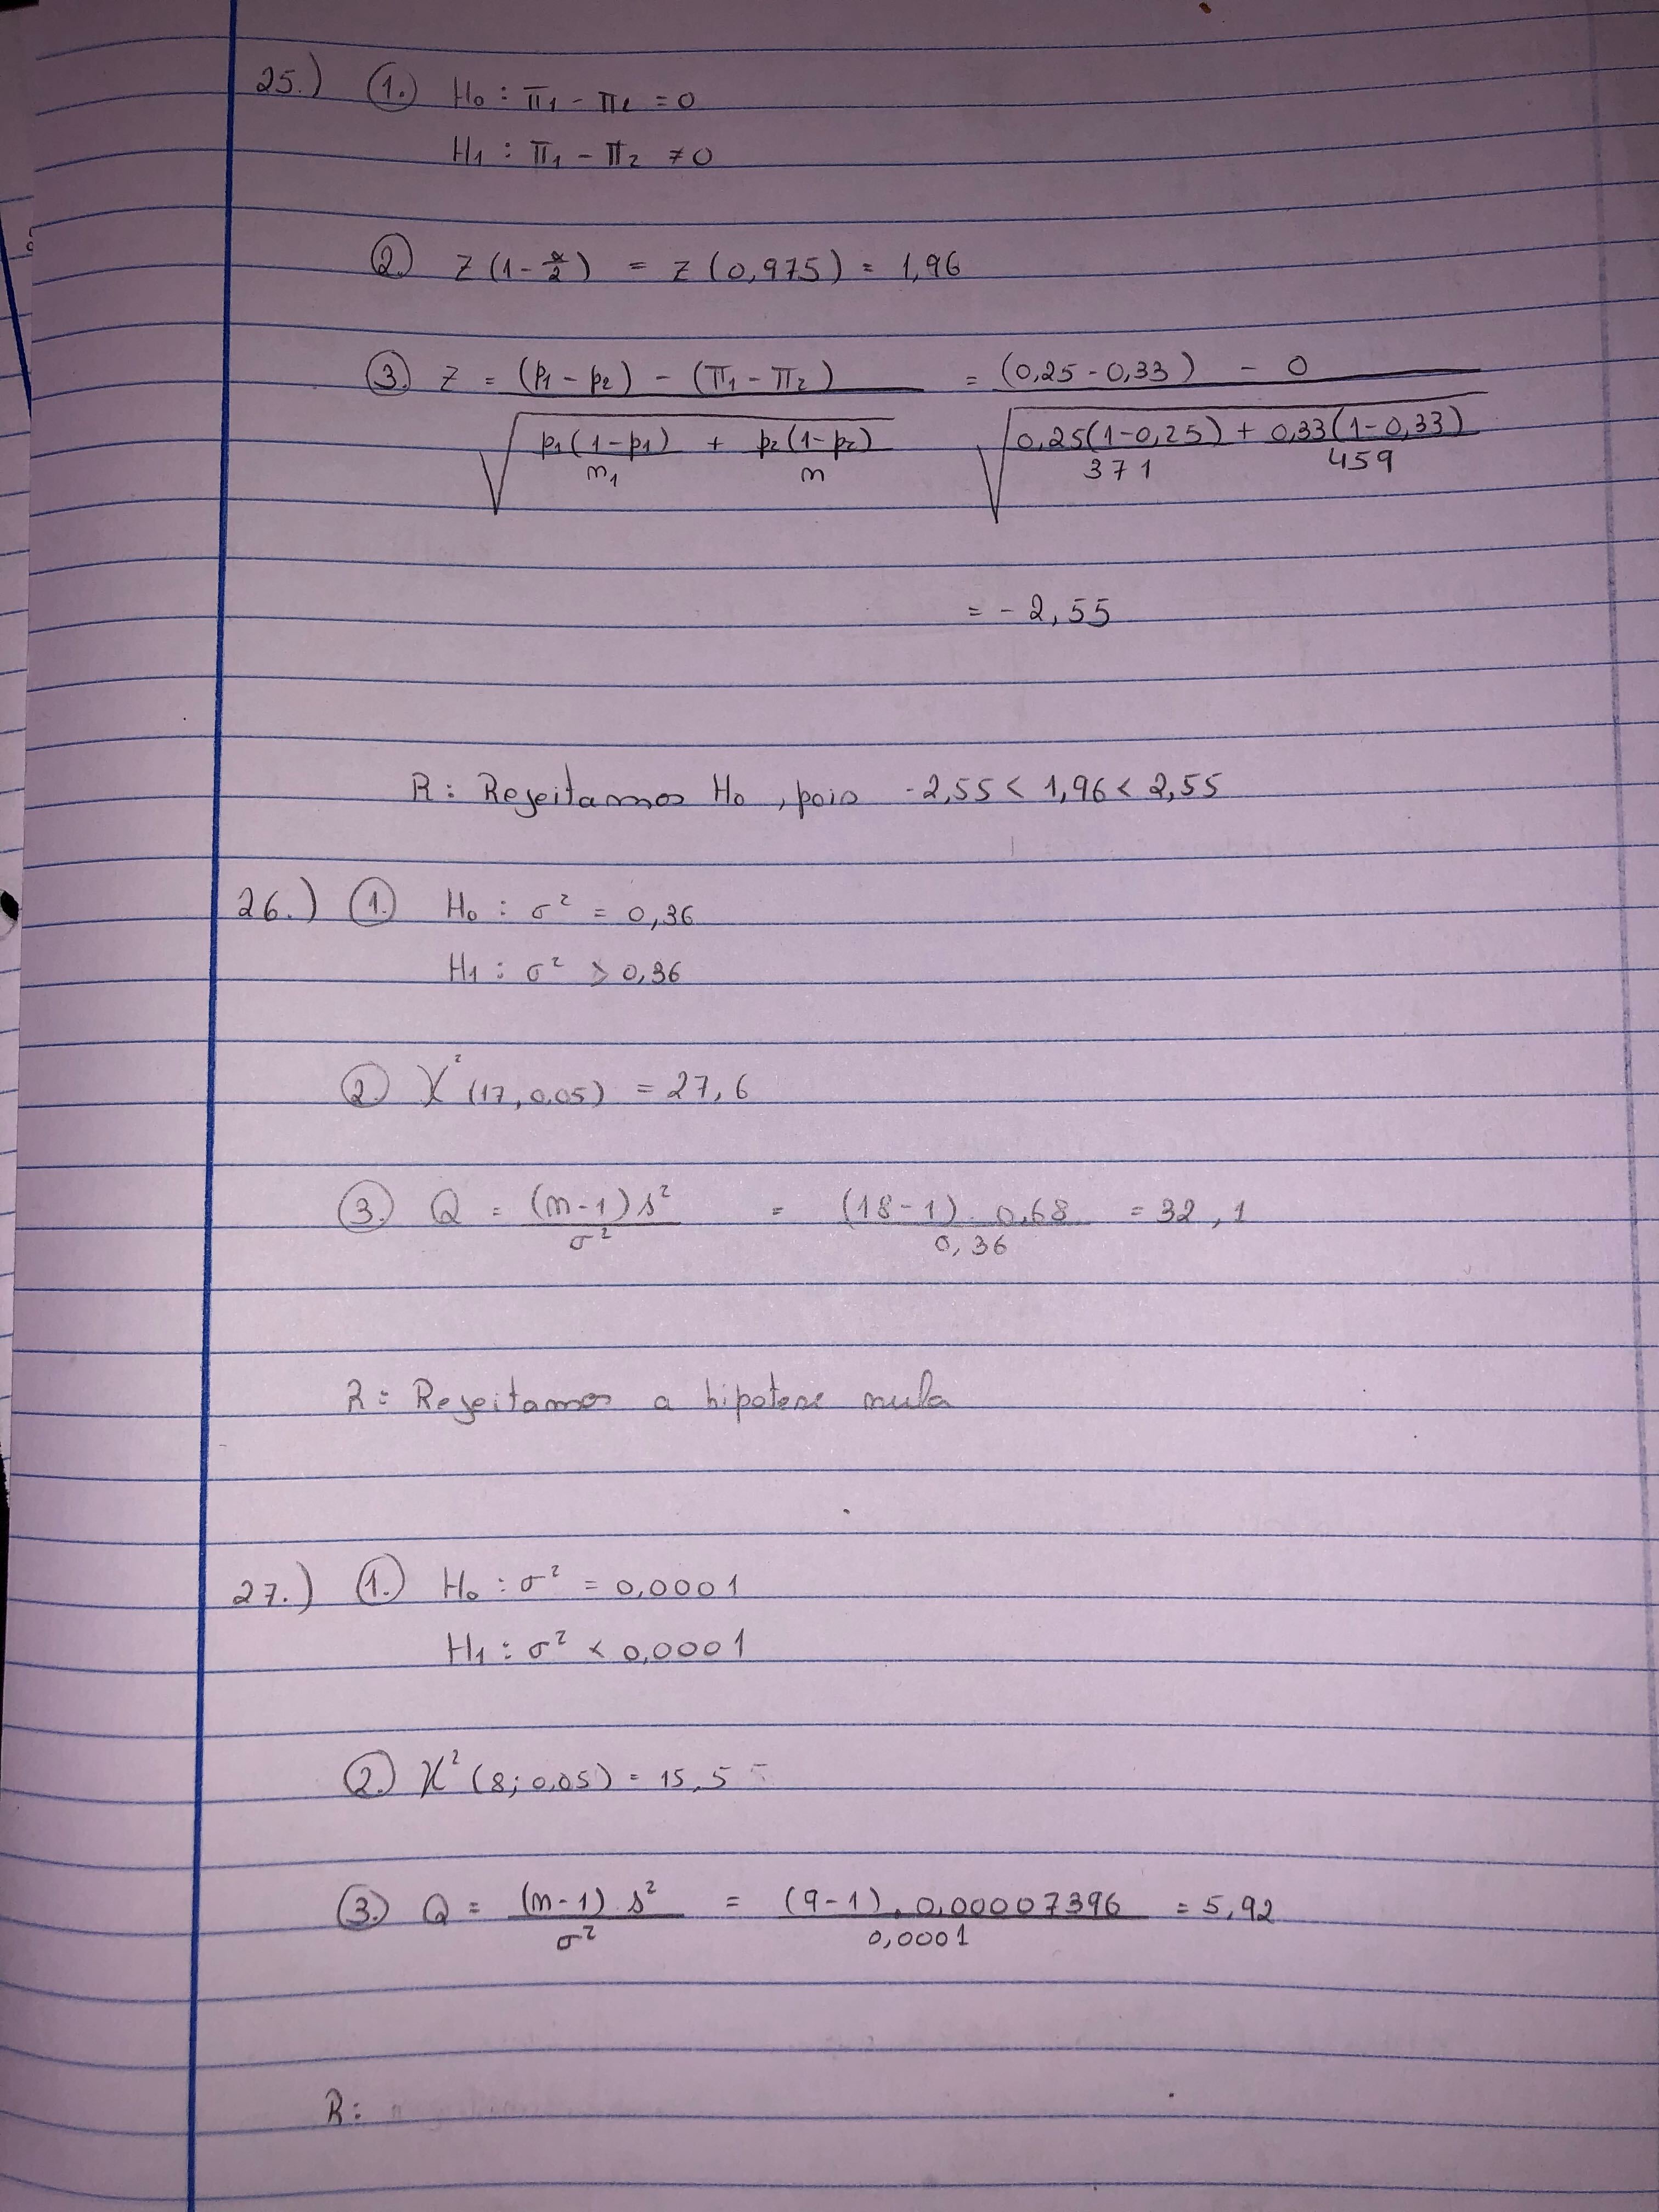 25.) 1. H₀ : π₁ - π₂ = 0
H₁ : π₁ - π₂ ≠ 0
2. z (1 - α/2) = z (0,975) = 1,96
3. z = ((p₁ - p₂) - (π₁ - π₂)) / √(p₁(1-p₁)/n₁ + p₂(1-p₂)/n) = ((0,25 - 0,33) - 0) / √(0,25(1-0,25)/371 + 0,33(1-0,33)/459)
= - 2,55
R: Rejeitamos H₀, pois -2,55 < 1,96 < 2,55
26.) 1. H₀ : σ² = 0,36
H₁ : σ² > 0,36
2. χ² (17, 0,05) = 27,6
3. Q = (n-1) s² / σ² = (18-1) . 0,68 / 0,36 = 32,1
R: Rejeitamos a hipotese nula
27.) 1. H₀ : σ² = 0,0001
H₁ : σ² < 0,0001
2. χ² (8; 0,05) = 15,5
3. Q = (n-1) s² / σ² = (9-1) . 0,00007396 / 0,0001 = 5,92
R: